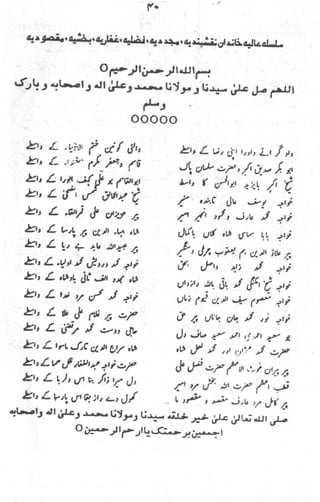 ۴۰
سلسلہ عالیہ خاندان نقشبندیہ، مجددیہ، فضلیہ، غفاریہ، بخشیہ، مقصودیہ
بسم اللہ الرحمن الرحیم
اللھم صل علیٰ سیدنا و مولانا محمد و علیٰ الہ و اصحابہ و بارک
وسلم
داد گر اے داورا اپنی رضا کے واسطے والئ کونین ختم الانبیاء کے واسطے
بو بکر صدیق اکبر و حضرت سلمان پاک قاسم و جعفر مکرم مقتداء کے واسطے
شیخ اکبر بایزید ابوالحسن کا واسطہ ابوالقاسم بو علی کہف الورا کے واسطے
خواجہ یوسف عالی تابندہ منیر شیخ عبدالخالق شمس الضحی کے واسطے
خواجہ محمد عارف و محمود انجیر امیر پیر عزیزان علی کے واسطے
خواجہ بابا سماسی شاہ کلاں باکمال شاہ بہاء الدین پیر پارسا کے واسطے
پیر علاؤ الدین ہم یعقوب چرخی دستگیر پیر عبیداللہ عابد بے ریا کے واسطے
خواجہ محمد زاہد واصل بحق خواجہ محمد درویش محمد اولیاء کے واسطے
خواجہ شیخ امکنگی محمد باقی باللہ رازداں شاہ مجدد الف ثانی بادشاہ کے واسطے
خواجہ معصوم سیف الدین قیوم زماں خواجہ محمد محسن مرد خدا کے واسطے
خواجہ نور محمد جان جاناں پیر حق پیر غلام علی علا کے واسطے
بو سعید احمدی احمد سعید صاف دل حاجی دوست محمد مرتضی کے واسطے
حضرت محمد عثمان اور محمد لعل شاہ شاہ سراج الدین تارک ماسوا کے واسطے
پیر پیران غوث الاعظم حضرت فضل علی حضرت خواجہ عبدالغفار کے واسطے
قطب اعظم حضرت اللہ بخش مرد اسیر دل میرا ذاکر بنا اس دلربا کے واسطے
پیر کامل مرد عارف مقصد و مقصود ما کھول دے راز بقا اس پارسا کے واسطے
صلی اللہ تعالیٰ علیٰ خیر خلقہ سیدنا و مولانا محمد و علیٰ الہ و اصحابہ
اجمعین برحمتک یا ارحم الرحمین